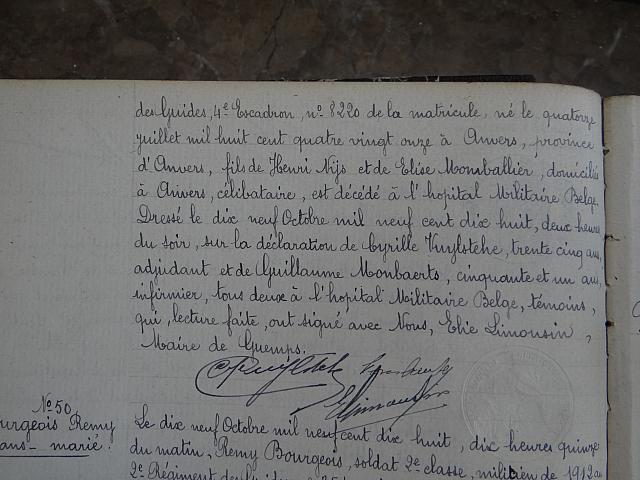 des Guides, 4e Escadron, no 8220 de la matricule, né le quatorze
juillet mil huit cent quatre vingt onze à Anvers, province
d'Anvers, fils de Henri Nijs et de Elise Momballier, domiciliés
à Anvers, célibataire, est décédé à l'hopital Militaire Belge.
Dressé le dix neuf Octobre mil neuf cent dix huit, deux heures
du soir, sur la déclaration de Cyrille Kuylstehe, trente cinq ans,
adjudant et de Guillaume Monbaerts, cinquante et un ans,
infirmier, tous deux à l'hopital Militaire Belge, témoins,
qui, lecture faite, ont signé avec Nous, Elie Limousin,
Maire de Guemps.
No 50
Bourgeois Remy
ans - marié.
Le dix neuf Octobre mil neuf cent dix huit, dix heures quinze
du matin, Remy Bourgeois, soldat 2e classe, milicien de 1912 au
2e Régiment